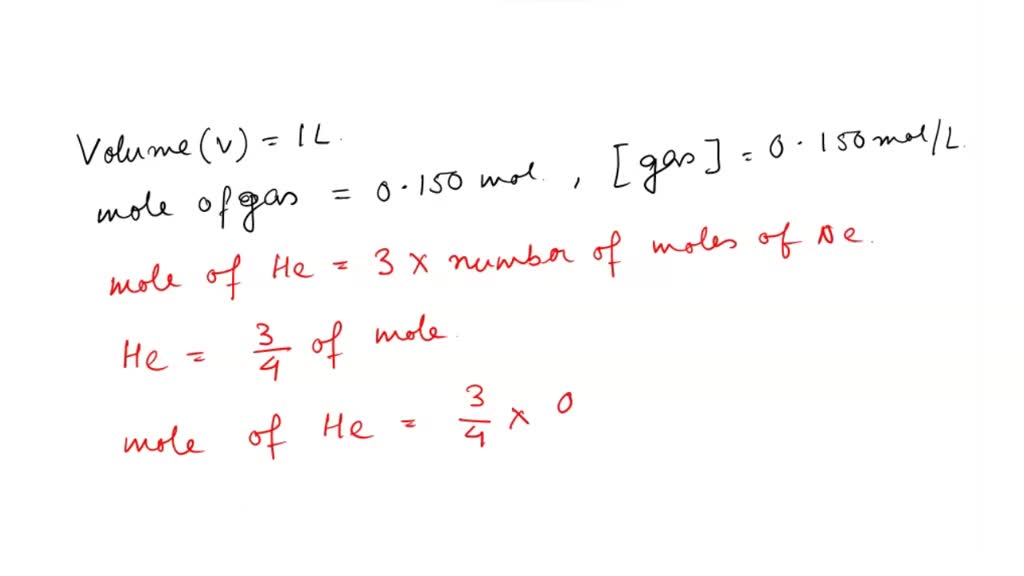 Volume (v) = 1L.
mole of gas = 0.150 mol. , [gas] = 0.150 mol/L.
mole of He = 3 x number of moles of Ne.
He = 3/4 of mole.
mole of He = 3/4 x 0